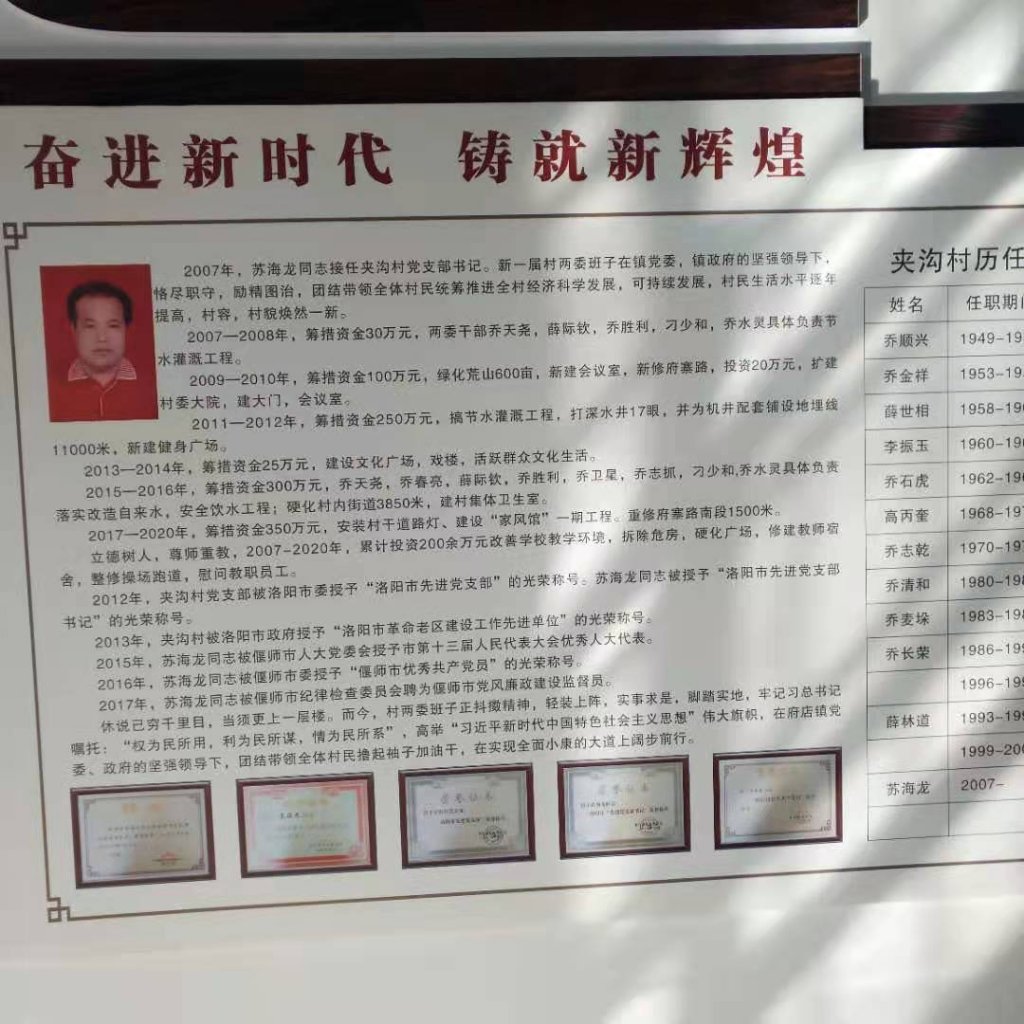 奋进新时代 铸就新辉煌
2007年，苏海龙同志接任夹沟村党支部书记。新一届村两委班子在镇党委，镇政府的坚强领导下，
恪尽职守，励精图治，团结带领全体村民统筹推进全村经济科学发展，可持续发展，村民生活水平逐年
提高，村容，村貌焕然一新。
2007—2008年，筹措资金30万元，两委干部乔天尧，薛际钦，乔胜利，刁少和，乔水灵具体负责节
水灌溉工程。
2009—2010年，筹措资金100万元，绿化荒山600亩，新建会议室，新修府寨路，投资20万元，扩建
村委大院，建大门，会议室。
2011—2012年，筹措资金250万元，搞节水灌溉工程，打深水井17眼，并为机井配套铺设地埋线
11000米，新建健身广场。
2013—2014年，筹措资金25万元，建设文化广场，戏楼，活跃群众文化生活。
2015—2016年，筹措资金300万元，乔天尧，乔春亮，薛际钦，乔胜利，乔卫星，乔志抓，刁少和,乔水灵具体负责
落实改造自来水，安全饮水工程；硬化村内街道3850米，建村集体卫生室。
2017—2020年，筹措资金350万元，安装村干道路灯、建设“家风馆”一期工程。重修府寨路南段1500米。
立德树人，尊师重教，2007-2020年，累计投资200余万元改善学校教学环境，拆除危房，硬化广场，修建教师宿
舍，整修操场跑道，慰问教职员工。
2012年，夹沟村党支部被洛阳市委授予“洛阳市先进党支部”的光荣称号。苏海龙同志被授予“洛阳市先进党支部
书记”的光荣称号。
2013年，夹沟村被洛阳市政府授予“洛阳市革命老区建设工作先进单位”的光荣称号。
2015年，苏海龙同志被偃师市人大党委会授予市第十三届人民代表大会优秀人大代表。
2016年，苏海龙同志被偃师市委授予“偃师市优秀共产党员”的光荣称号。
2017年，苏海龙同志被偃师市纪律检查委员会聘为偃师市党风廉政建设监督员。
休说已穷千里目，当须更上一层楼。而今，村两委班子正抖擞精神，轻装上阵，实事求是，脚踏实地，牢记习总书记
嘱托：“权为民所用，利为民所谋，情为民所系”，高举“习近平新时代中国特色社会主义思想”伟大旗帜，在府店镇党
委、政府的坚强领导下，团结带领全体村民撸起袖子加油干，在实现全面小康的大道上阔步前行。
夹沟村历任
姓名 任职期
乔顺兴 1949-19
乔金祥 1953-19
薛世相 1958-19
李振玉 1960-19
乔石虎 1962-19
高丙奎 1968-19
乔志乾 1970-19
乔清和 1980-19
乔麦垛 1983-19
乔长荣 1986-19
1996-19
薛林道 1993-19
1999-20
苏海龙 2007-